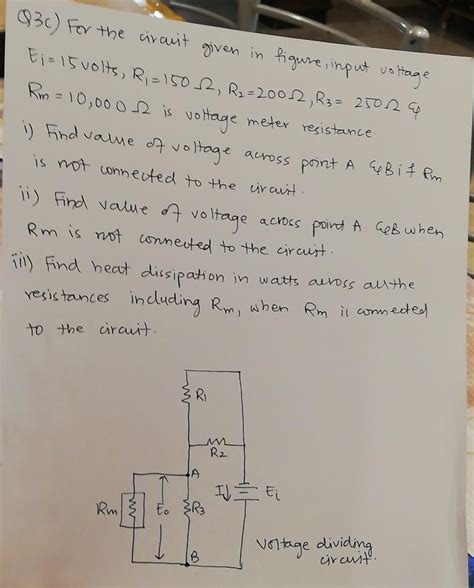 Q3c) For the circuit given in figure, input voltage
Ei = 15 volts, R1 = 150 Ω, R2 = 200 Ω, R3 = 250 Ω &
Rm = 10,000 Ω is voltage meter resistance.
i) Find value of voltage across point A & B if Rm
is not connected to the circuit.
ii) Find value of voltage across point A & B when
Rm is not connected to the circuit.
iii) Find heat dissipation in watts across all the
resistances including Rm, when Rm is connected
to the circuit.
R1
R2
A
Rm
E0
R3
I
Ei
B
Voltage dividing
circuit.